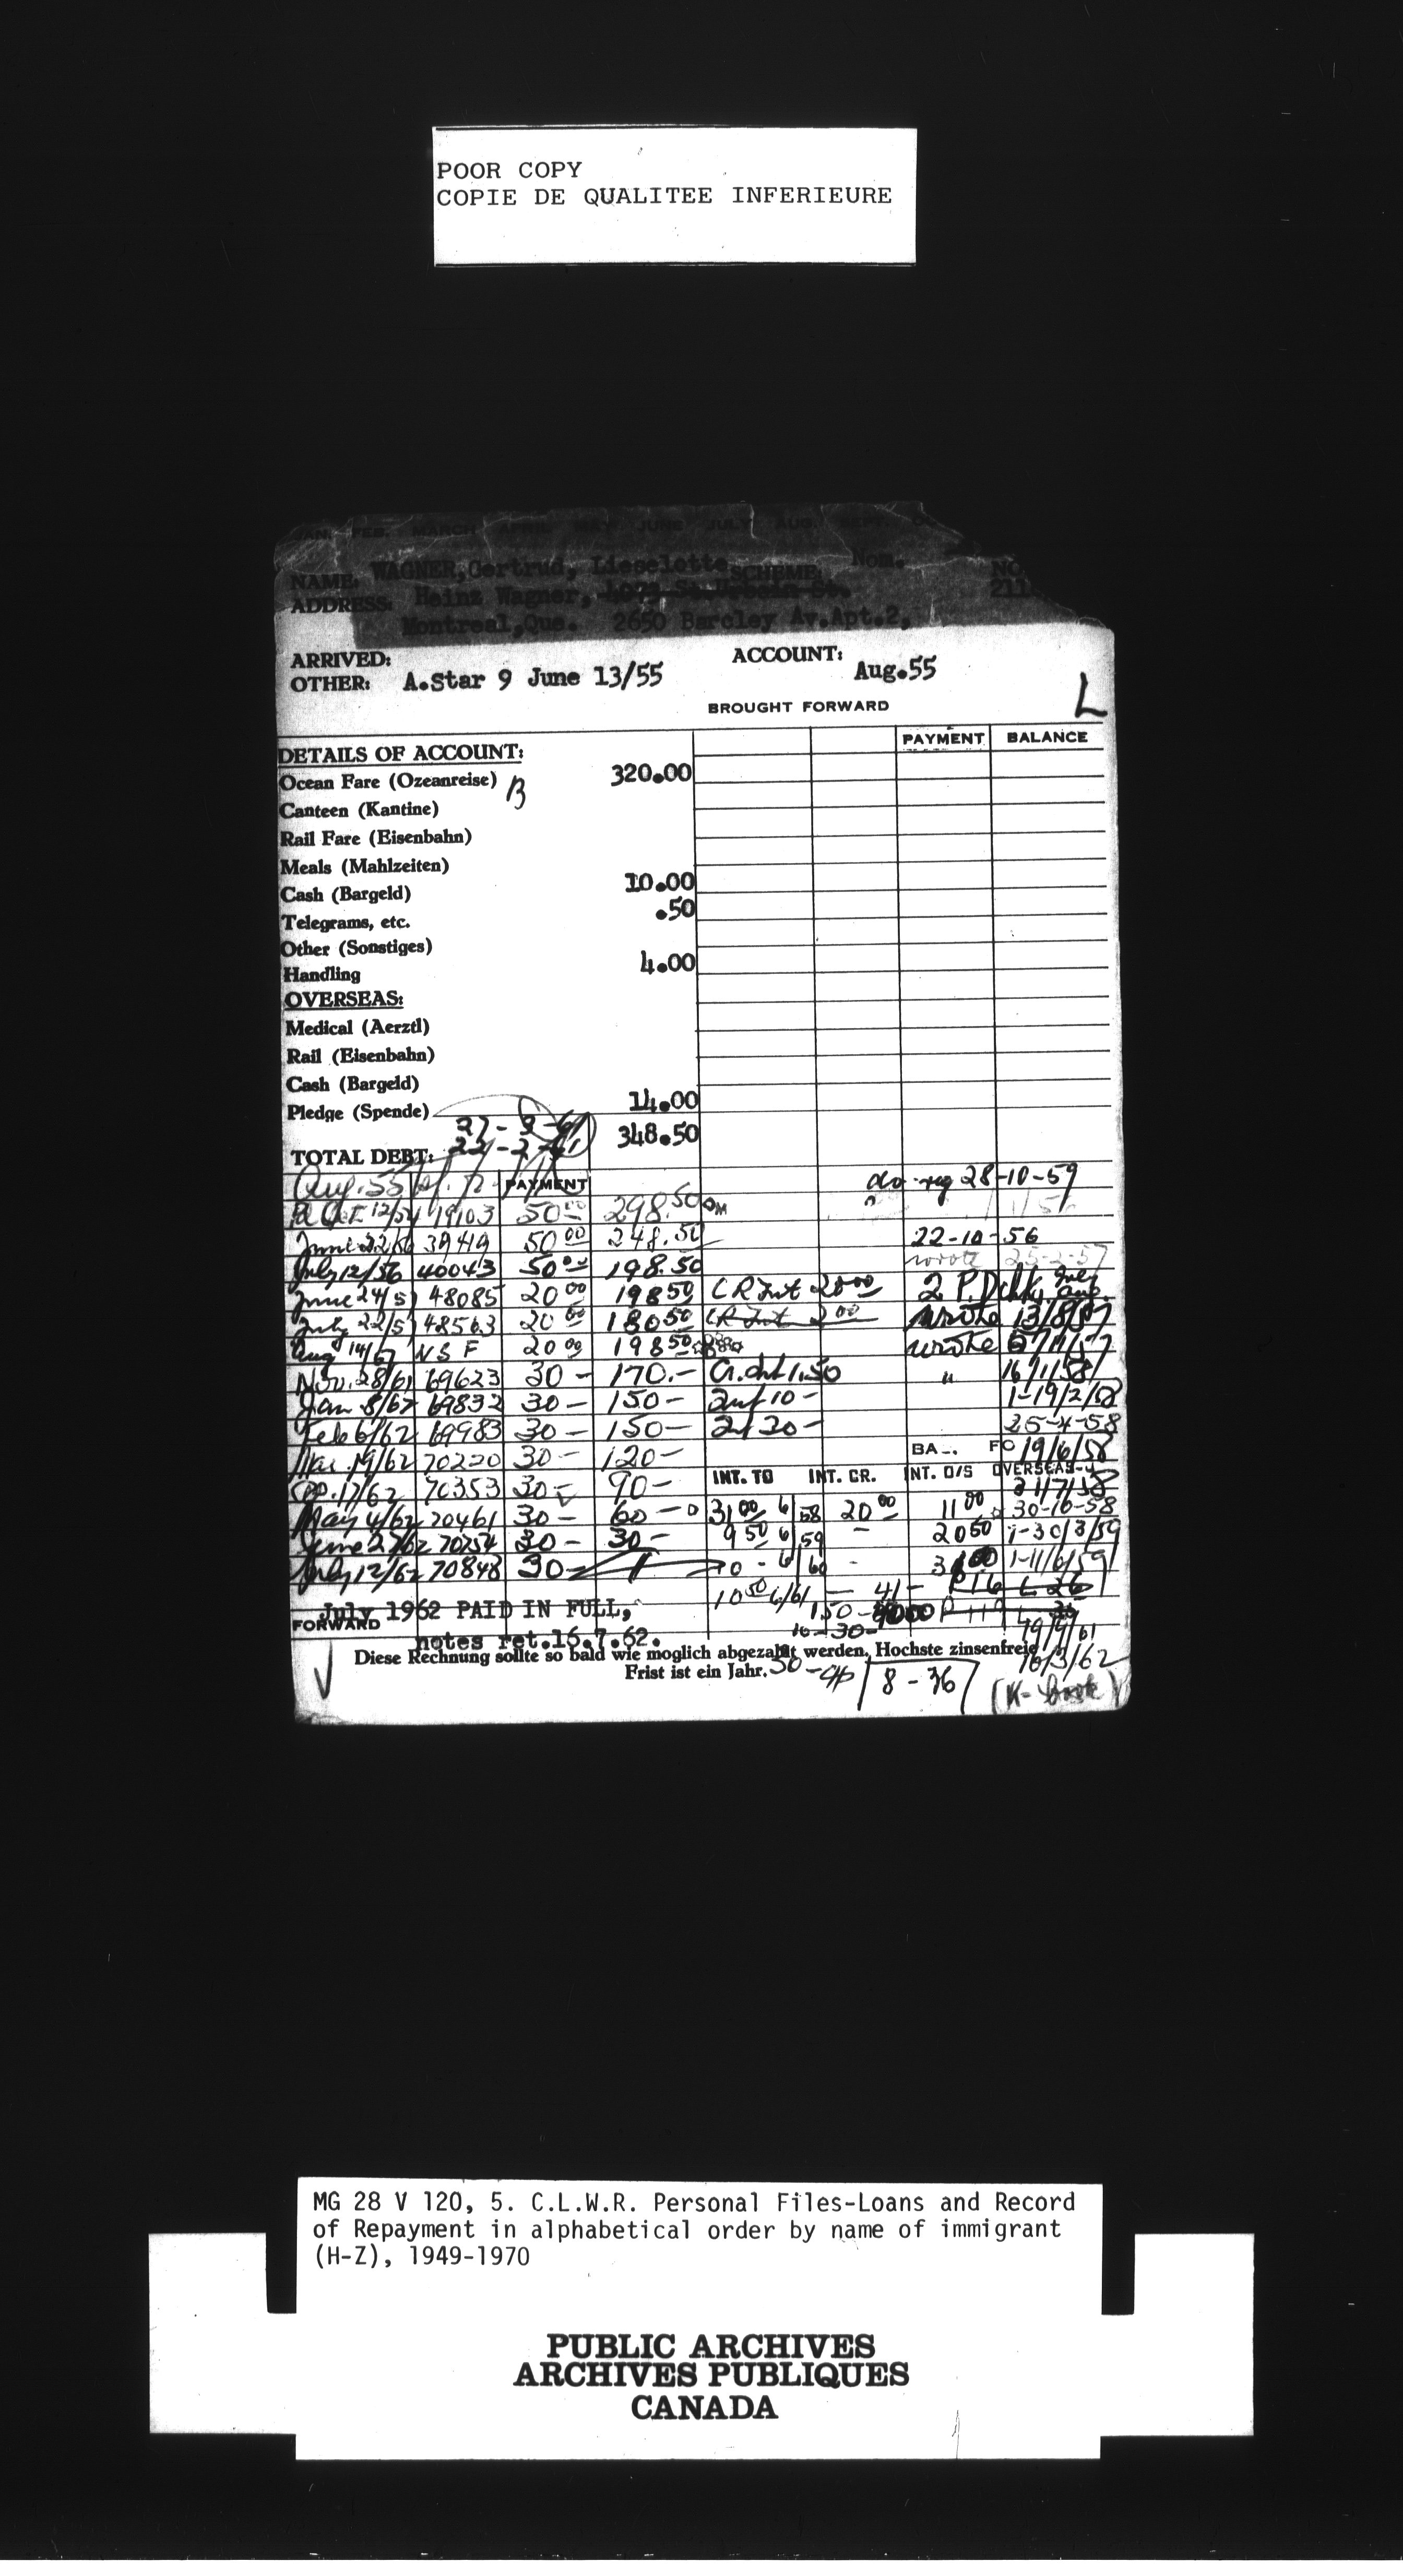 POOR COPY
COPIE DE QUALITEE INFERIEURE
FEB. MARCH JUNE JULY AUG. SEPT.
NAME. WAGNER, Gertrud, Lieselotte SCHEME Nom. NO
ADDRESS: Heinz Wagner, St. 211
Montreal, Que. 2650 Barcley Av. Apt. 2,
ARRIVED: ACCOUNT:
OTHER: A.Star 9 June 13/55 Aug.55
BROUGHT FORWARD L
PAYMENT BALANCE
DETAILS OF ACCOUNT:
Ocean Fare (Ozeanreise) B 320.00
Canteen (Kantine)
Rail Fare (Eisenbahn)
Meals (Mahlzeiten)
Cash (Bargeld) 10.00
Telegrams, etc. .50
Other (Sonstiges)
Handling 4.00
OVERSEAS:
Medical (Aerztl)
Rail (Eisenbahn)
Cash (Bargeld)
Pledge (Spende) 14.00
27-2-61
TOTAL DEBT: 22-2-61 348.50
Aug. 55 PAYMENT do reg 28-10-59
19103 50 00 298.50
June 22/56 39419 50 00 248.50 22-10-56
July 12/56 40043 50 00 198.50 wrote 25-2-57
June 24/57 48085 20 00 198 50 CR Int 20 00 2 P.D. chks July Aug.
July 22/57 48563 20 00 180 50 CR Int 2 00 wrote 13/8/57
Aug 14/57 N S F 20 00 198 50 wrote
Nov. 28/61 69623 30 - 170.- Cr. Int 1.50 " 16/1/58
Jan 8/62 69832 30 - 150 - Int 10 - 1-19/2/58
Feb 6/62 69983 30 - 150 - Int 30 - 25-4-58
Mar. 19/62 70220 30 - 120 - BA FO 19/6/58
Ap. 17/62 70353 30 - 90 - INT. TO INT. CR. INT. O/S OVERSEAS 31/7/58
May 4/62 70461 30 - 60 - 31 00 6/58 20 00 11 00 30-10-58
June 27/62 70754 30 - 30 - 9 50 6/59 - 20 50 1-30/3/59
July 12/62 70848 30 - 10 - 6/60 - 1-11/6/59
10 50 6/61 - 41 -
July 1962 PAID IN FULL,
FORWARD 10 - 30 - 19/9/61
notes ret. 16.7.62.
Diese Rechnung sollte so bald wie moglich abgezahlt werden. Hochste zinsenfreie 16/3/62
Frist ist ein Jahr. 30 - 8-36 (K- book)
MG 28 V 120, 5. C.L.W.R. Personal Files-Loans and Record
of Repayment in alphabetical order by name of immigrant
(H-Z), 1949-1970
PUBLIC ARCHIVES
ARCHIVES PUBLIQUES
CANADA